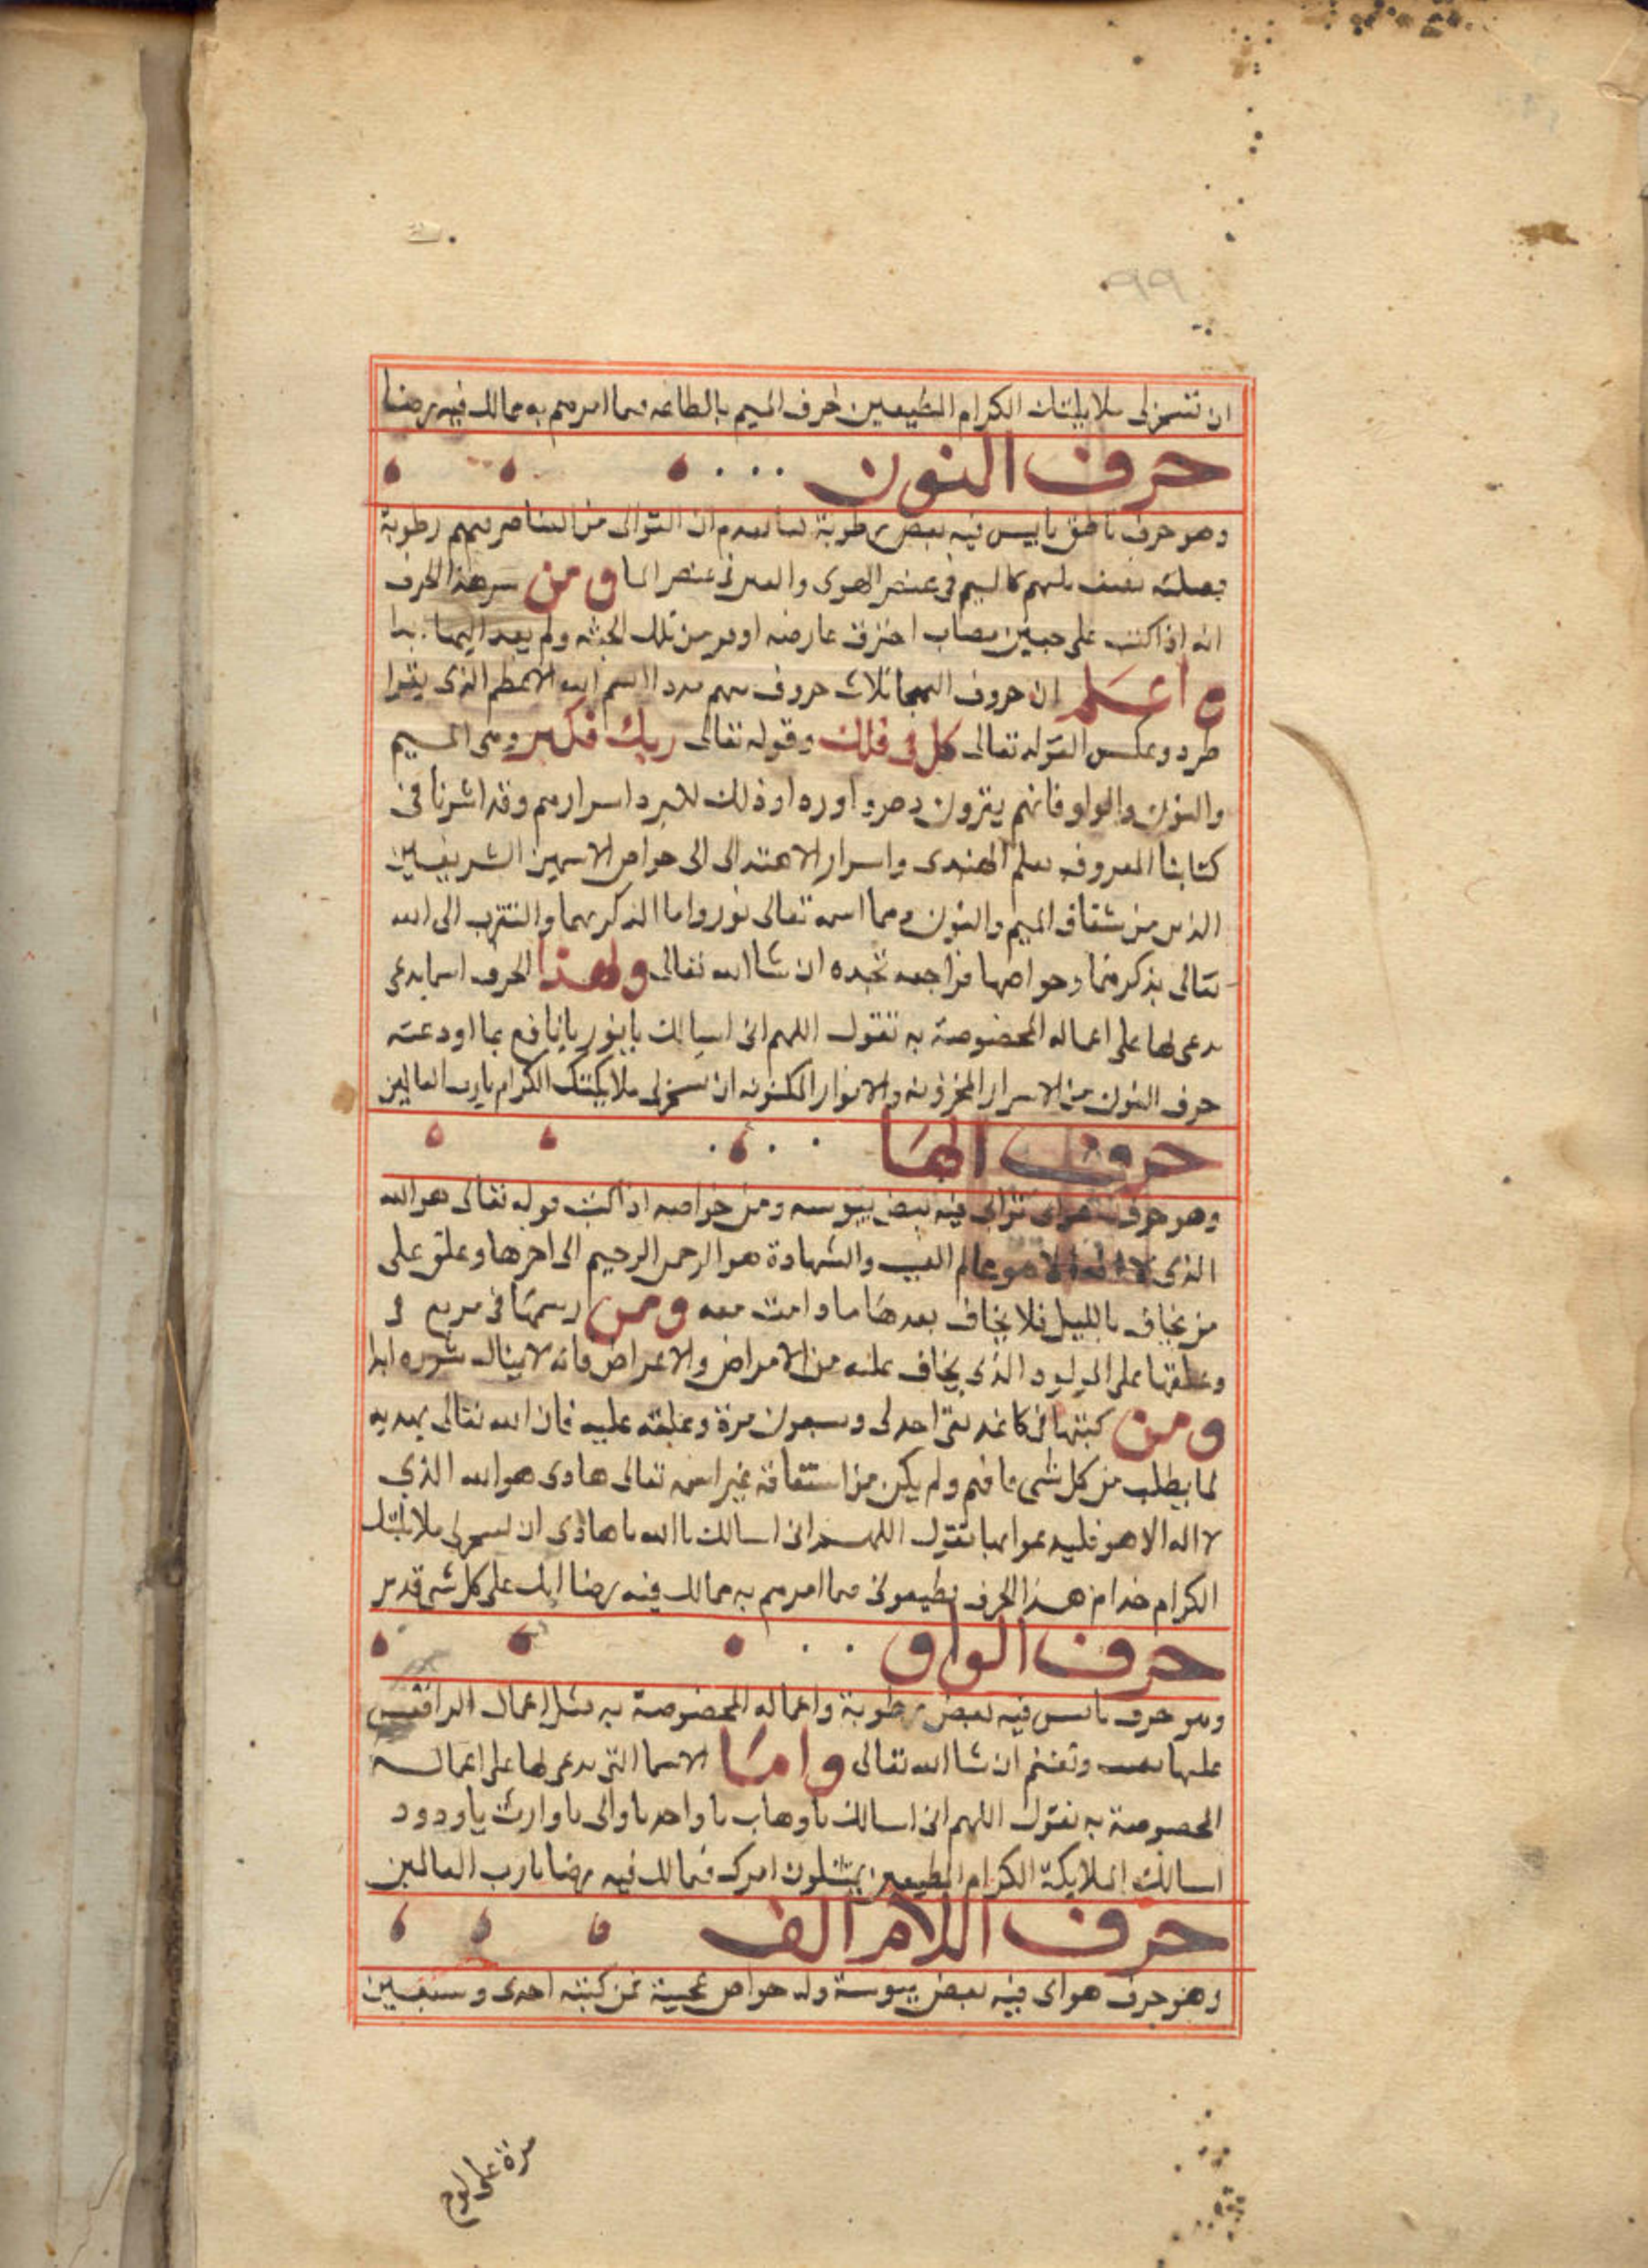 ٩٩
ان تسخر لى ملايكتك الكرام المطيعين لحرف الميم بالطاعه فيما امرهم به مما لك فيه رضا
حرف النون
وهو حرف ناطق يابس فيه بعض رطوبة لما تقدم ان التوالى من العناصر فيهم رطوبة
كالميم فى عنصر الهوى والعين فى عنصر الما ومن سر هذا الحرف
انه اذا كتب على جبين مصاب احترق عارضه او فر من تلك الجثه ولم يعد اليها ابدا
واعلم ان حروف الهجا ثلاث حروف منهم الاسم الله الاعظم الذى يقرا
طرد وعكس القوله تعالى كل فى فلك وقوله تعالى ربك فكبر وهى الميم
والنون والواو فانهم يقرون طرد اسرارهم وقد اشرنا فى
كتابنا المعروف بعلم الهدى واسرار الاهتدا الى خواص الاسمين الشريفين
الذين من شقاف الميم والنون وهما اسمه تعالى نور واما الذكر بهما والتقرب الى الله
تعالى بذكرهما وخواصها فراجعه تجده ان شا الله تعالى ولهذا الحرف اسما يدعى
يدعى لها على اعماله المخصوصة به تقول اللهم انى اسالك يا نور يا نافع بما اودعته
حرف النون من الاسرار المخزونه والانوار المكنونه ان تسخر لى ملايكتك الكرام يارب العالمين
حرف الها
وهو حرف هواى ترابى فيه بعض يبوسه ومن خواصه اذا كتب قوله تعالى هو الله
الذى لا اله الا هو عالم الغيب والشهادة هو الرحمن الرحيم الى اخرها وعلق على
من يخاف بالليل فلا يخاف بعدها ما دامت معه ومن رسمها فى مربع
وعلقها على المولود الذى يخاف عليه من الامراض والاعراض فانه لا يناله شره ابدا
ومن كتبها فى كاغد نقى احدى وسبعون مرة وعلقه عليه فان الله تعالى يهديه
لما يطلب من كل شى نافع ولم يكن من اشتقاقه غير اسمه تعالى هادى هو الله الذي
لا اله الا هو فليدعوا بها تقول اللهم انى اسالك يا الله يا هادى ان تسخر لى ملايكتك
الكرام خدام هذا الحرف يطيعونى فيما امرهم به مما لك فيه رضا انك على كل شى قدير
حرف الواو
وهو حرف يابس فيه بعض رطوبة واعماله المخصوصة به مثل اعمال الدا
عليها وتغنم ان شا الله تعالى واما الاسما التى يدعى لها على اعماله
المخصوصة به تقول اللهم انى اسالك يا وهاب يا واحد يا والى يا وارث يا ودود
اسالك الملايكة الكرام المطيعين يمتثلون امرك فيما لك فيه رضا يارب العالمين
حرف اللام الف
وهو حرف هواى فيه بعض يبوسة وله خواص عجيبة فمن كتبه احدى وسبعين
مرة على لوح